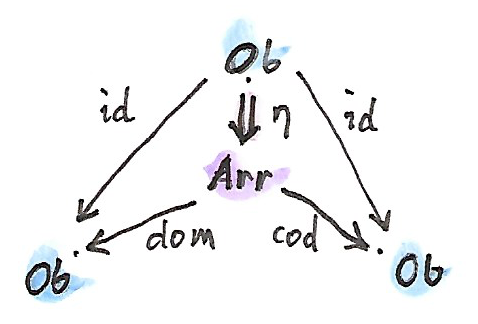 Ob
id η id
Arr
dom cod
Ob Ob